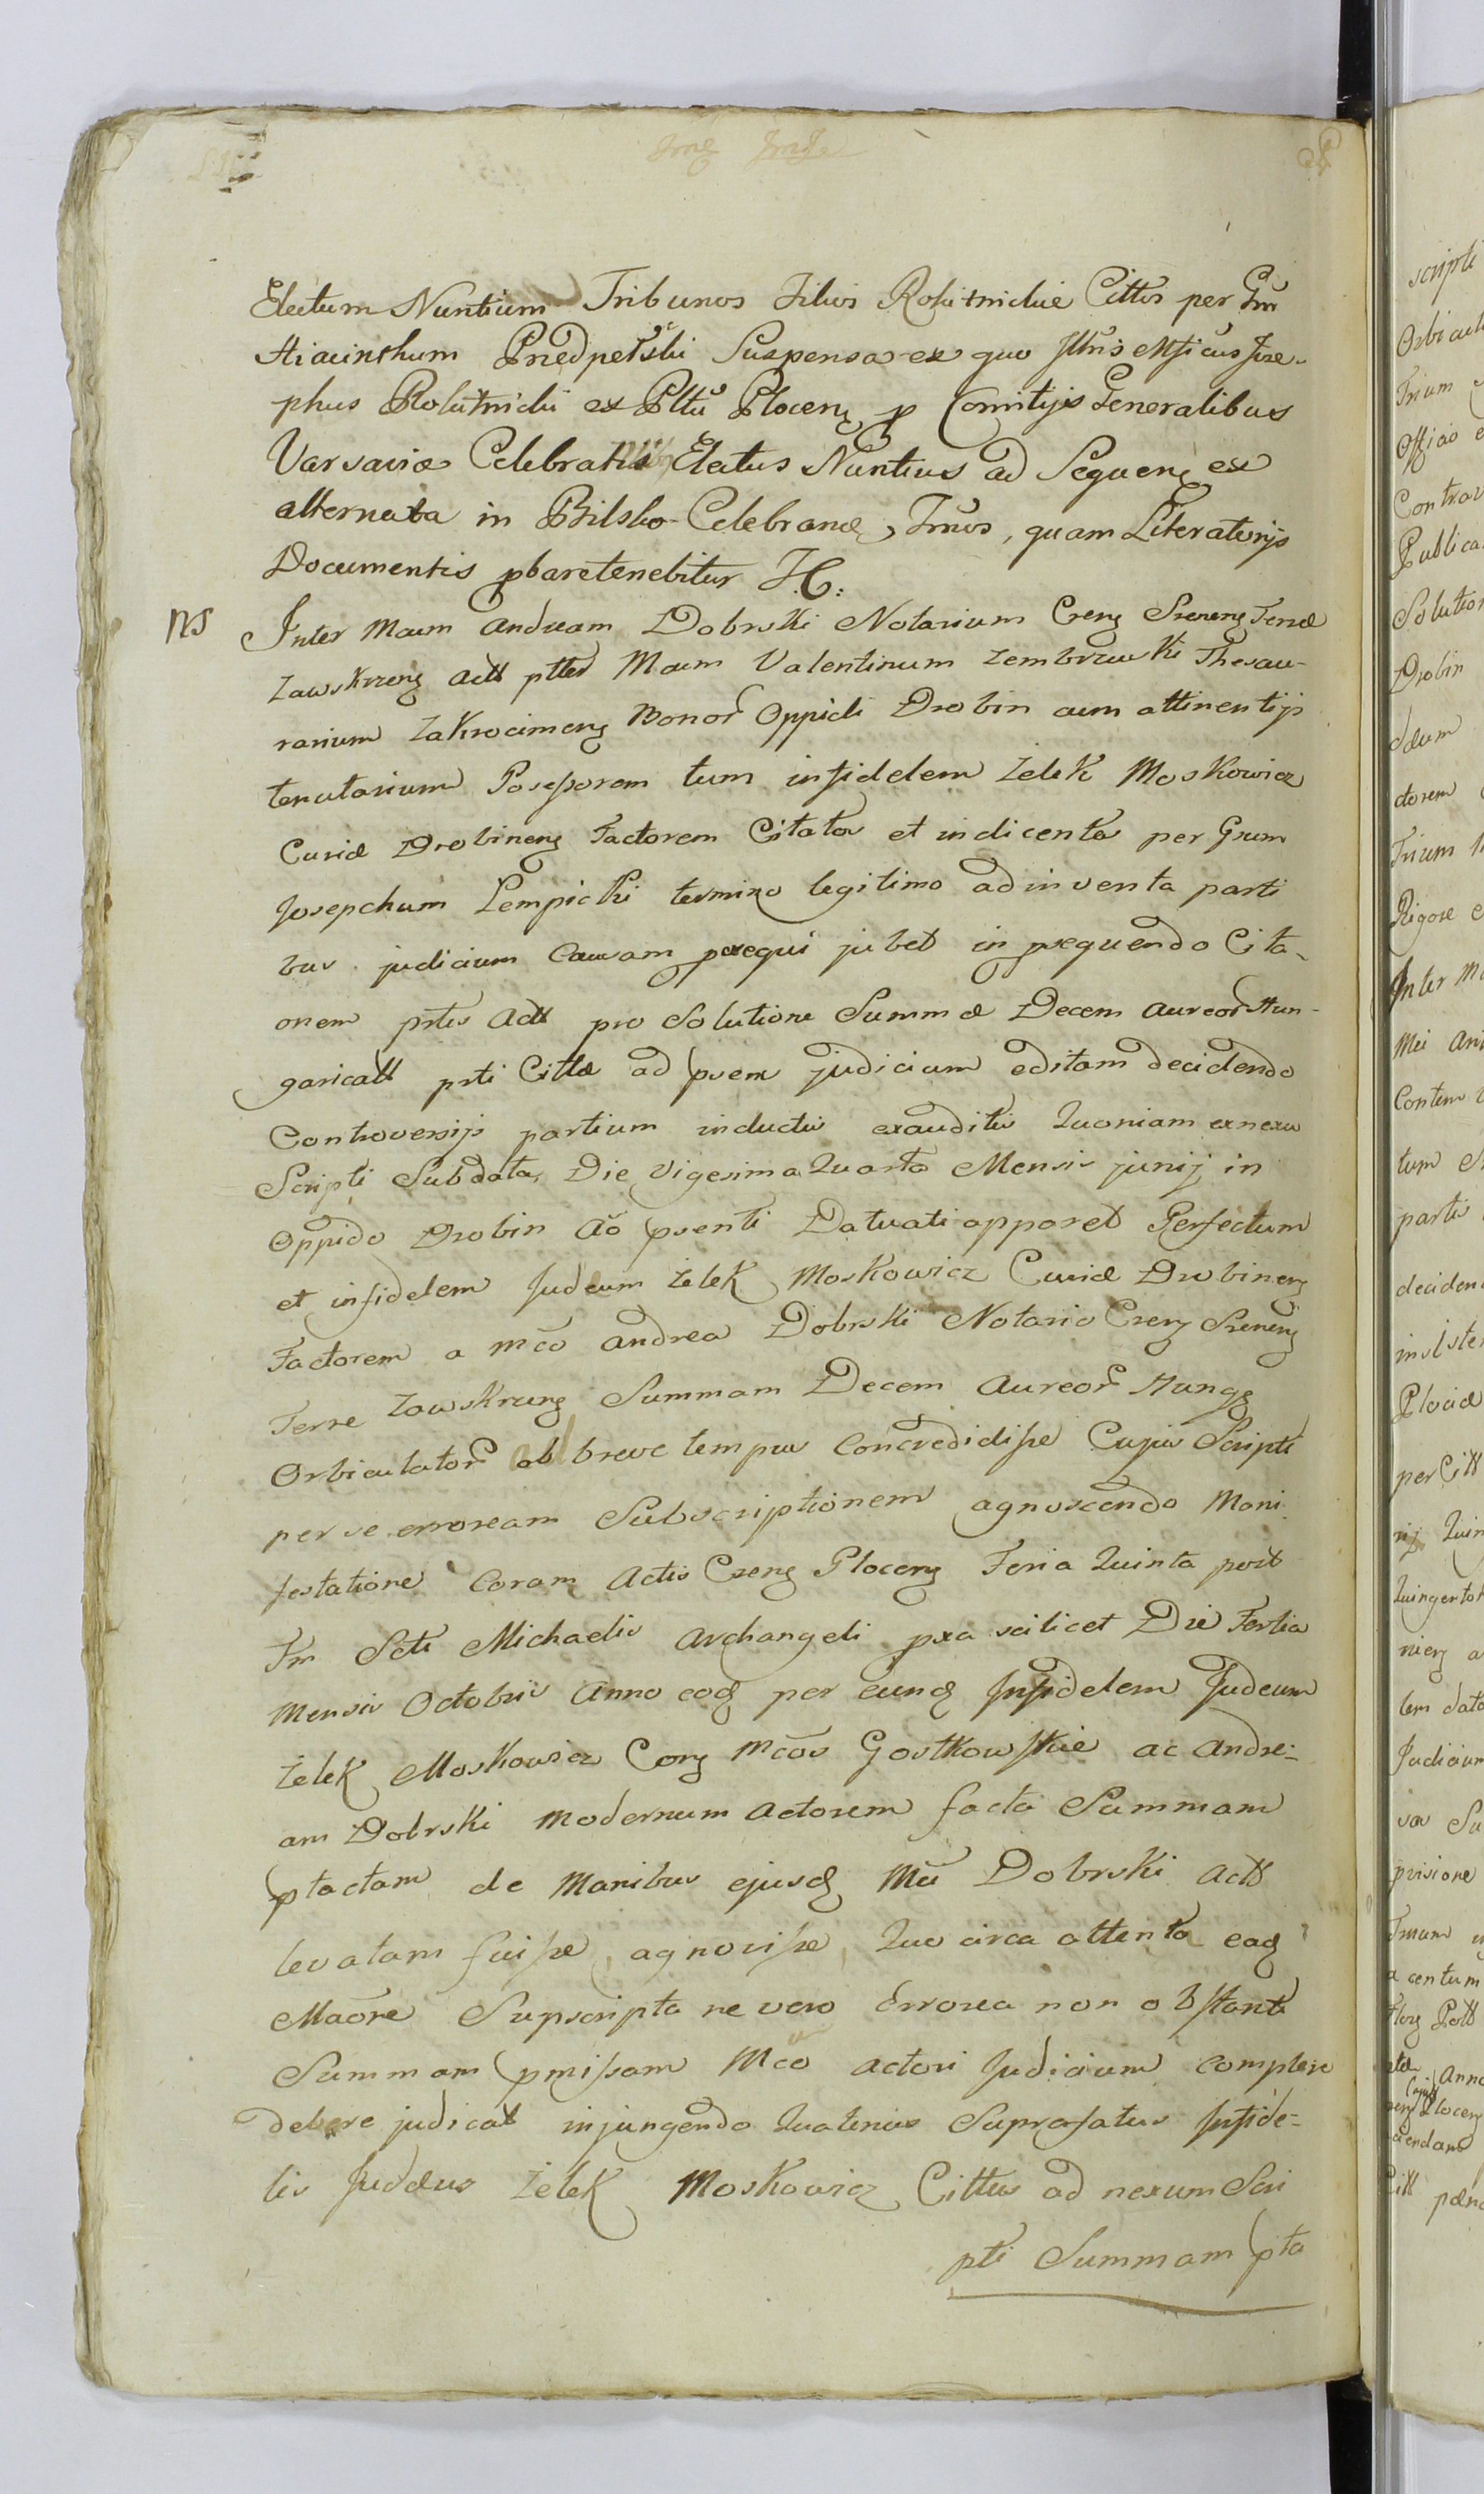 Electum Nuntium Tribunos Filios Rokitnickie Cittos per Gnm
Hiacinthum Przedpełski Suspensa ex quo Jllris Mficus Jose-
phus Rokitnicki ex Pltu Plocen p Comitijs Generalibus
Varsaviæ Celebratis Electus Nuntius ad Sequen ex
alternata in Bilsko Celebrand, Tmos, quam Literatorijs
Documentis pbaretenebitur H:
ns Inter Mcum Andream Dobrski Notarium Cren Srenen Terræ
Zawskrzen Actt ptter Mcum Valentinum Zembrzuski Thesau-
rarium Zakrocimen Bonor Oppidi Drobin cum attinentijs
tenutarium Poseßorem tum infidelem Zelek Moskowicz
Curiæ Drobinen Factorem Citator et indicenta per Gnum
Josepchum Lempicki termino legitimo ad inventa parti
bus judicium Causam pxequi jubet in pxequendo Cita-
onem prtis Actt pro Solutione Summæ Decem Aureor Hun-
garicatt prti Cittæ ad psens judicium editam decidendo
Controversijs partium inductis exauditis Quoniam ex nexu
Scripti Subdata Die Vigesima Quarta Mensis junij in
Oppido Drobin Aõ psenti Datuati apparet Perfectum
et infidelem Judæum Zelek Moskowicz Curiæ Drobinen
Factorem a Mco Andrea Dobrski Notario Cren Srenen
Terre Zawskrzen Summam Decem Aureor Hung
Orbiculator ob breve tempus Concredidiße Cujus Scripti
per se erroneam Subscriptionem agnoscendo Mani
festatione Coram Actis Cren Plocen Feria Quinta post
Fm Scti Michaelis Archangeli pxa scilicet Die Tertia
Mensis Octobris Anno eod per eund Jnfidelem Judeum
Zelek Moskowicz Con Mcos Gostkowskie ac Andre-
am Dobrski Modernum Actorem facta Summam
ptactam de Manibus ejusd Mci Dobrski Actt
levatam fuiße, agnoviße, Quo circa attenta ead
Maõne Supscripta ne vero Erronea non obstante
Summam pmißam Mco actori Judicium complere
debere judicat injungendo Quatenus Suprafatus Jnfide-
lis Judæus Zelek Moskowicz Cittus ad nexum Scri
pti Summam pta